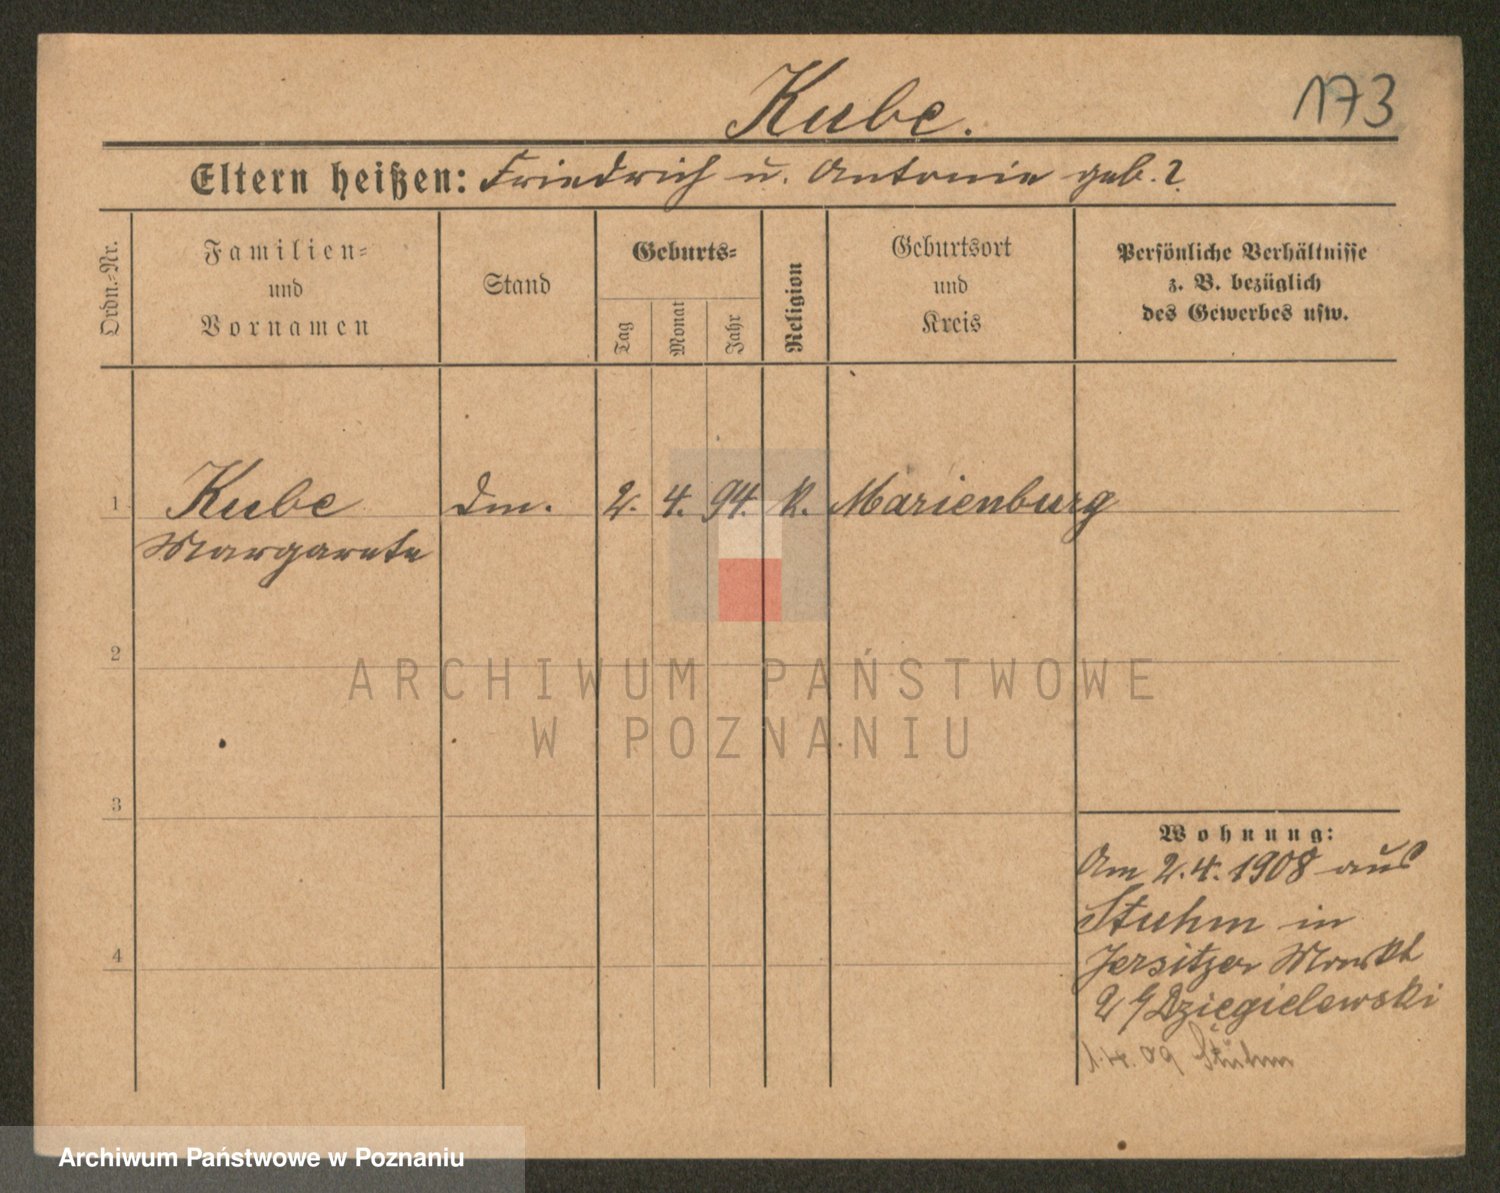 Kube.
173
Eltern heißen: Friedrich u. Antonie geb. ?
Ordn.-Nr.
Familien-
und
Vornamen
Stand
Geburts-
Tag
Monat
Jahr
Religion
Geburtsort
und
Kreis
Persönliche Verhältnisse
z. B. bezüglich
des Gewerbes usw.
1 Kube Dm. 2. 4. 94. k. Marienburg
Margarete
2
ARCHIWUM PAŃSTWOWE
W POZNANIU
3
Wohnung:
Am 2.4.1908 aus
Stuhm in
4
Jersitzer Markt
2 Dzięgielewski
1.4.09 Stuhm
Archiwum Państwowe w Poznaniu